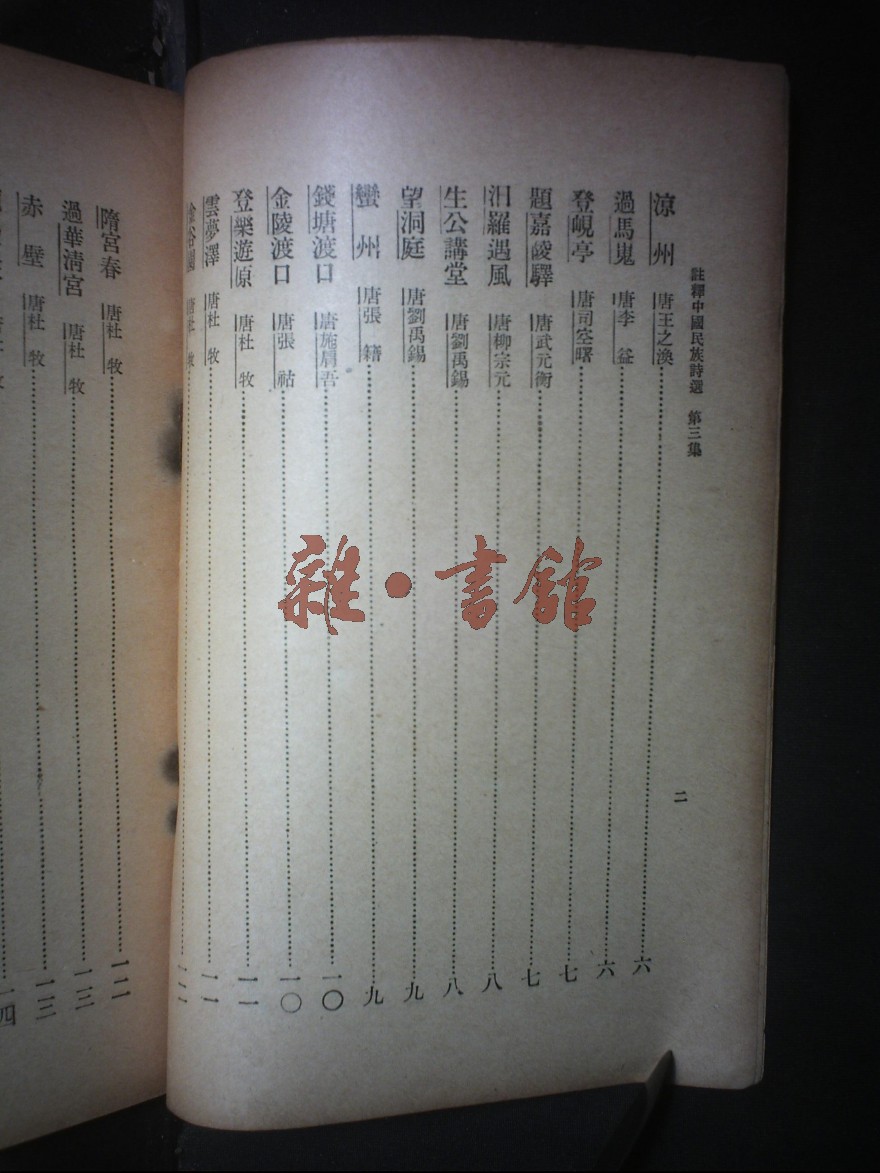 註釋中國民族詩選 第三集
二
涼州 唐王之渙 六
過馬嵬 唐李益 六
登峴亭 唐司空曙 七
題嘉陵驛 唐武元衡 七
汨羅遇風 唐柳宗元 八
生公講堂 唐劉禹錫 八
望洞庭 唐劉禹錫 九
蠻州 唐張籍 九
錢塘渡口 唐施肩吾 一〇
金陵渡口 唐張祜 一〇
登樂遊原 唐杜牧 一一
雲夢澤 唐杜牧 一一
谷園 唐杜牧
隋宮春 唐杜牧 一二
過華清宮 唐杜牧 一三
赤壁 唐杜牧 一三
一四
雜·書館